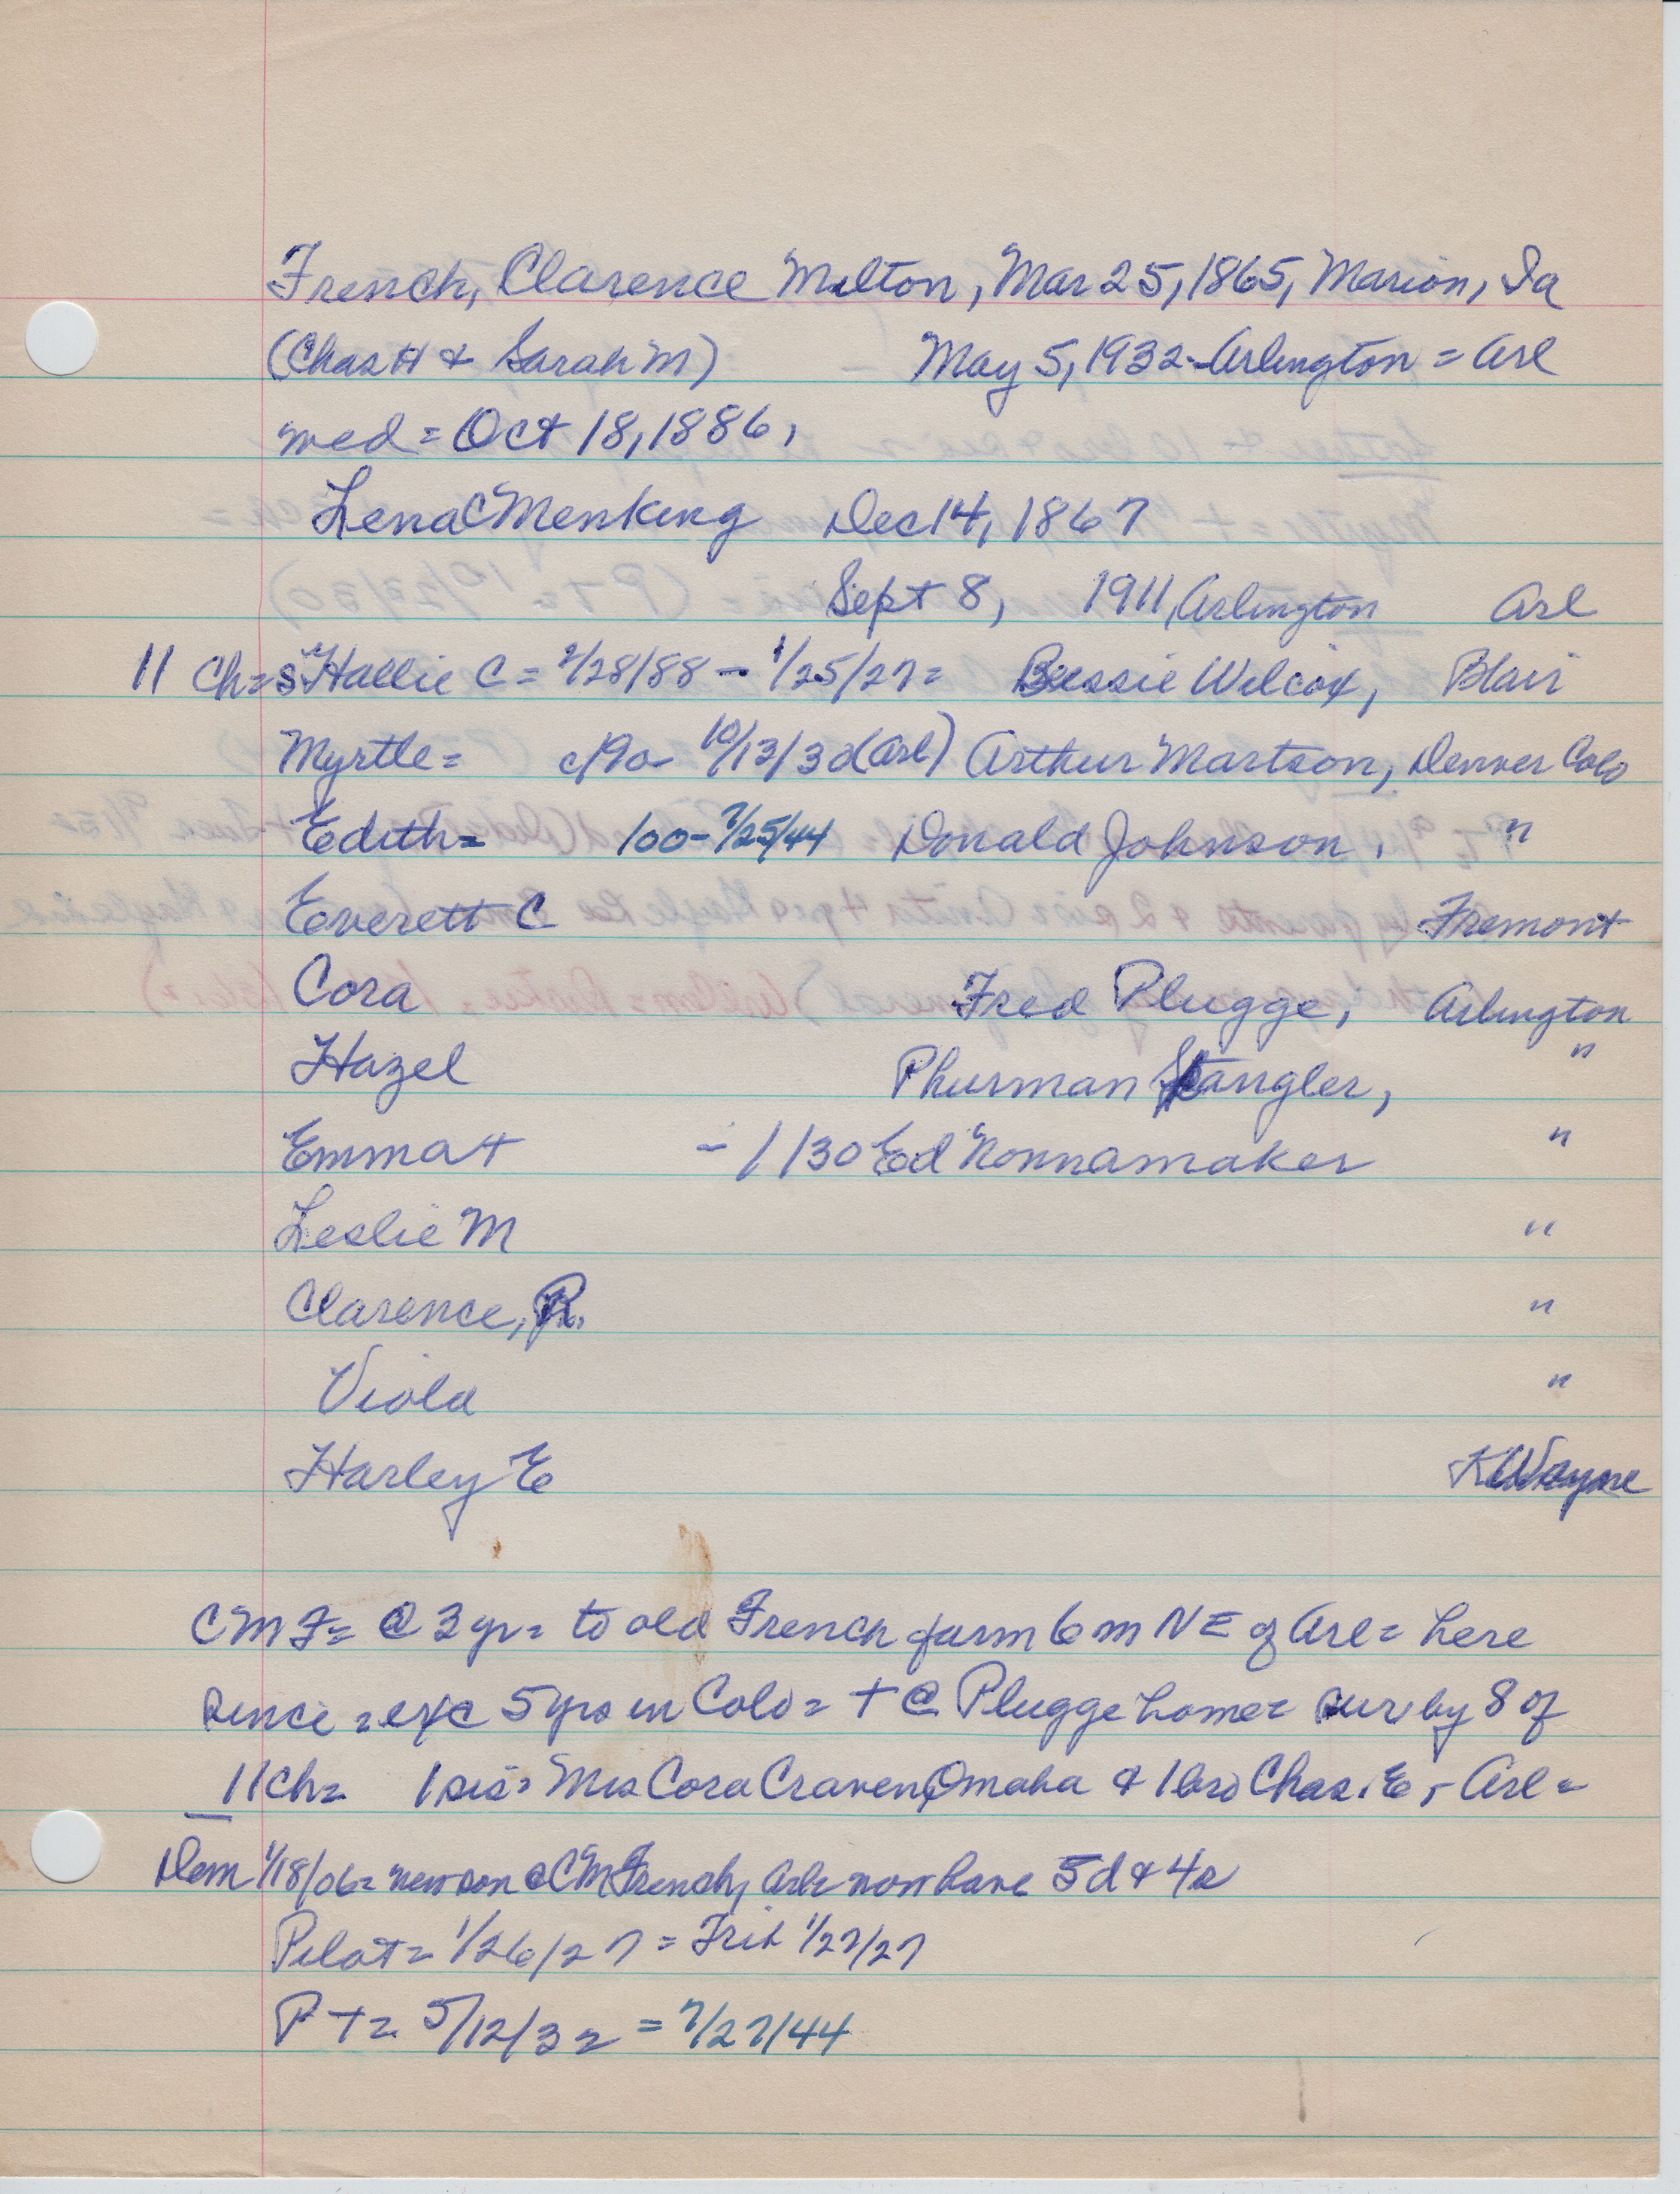 French, Clarence Milton, Mar 25, 1865, Marion, Ia
(Chas H & Sarah M) May 5, 1932 - Arlington = Arl
wed = Oct 18, 1886,
Lena C Menking Dec 14, 1867
Sept 8, 1911, Arlington Arl
11 Ch = s Hallie C = 2/28/88 - 1/25/27 = Bessie Wilcox, Blair
Myrtle = c/90 - 10/13/32 (Arl) Arthur Martson, Denver Colo
Edith = 100 - 7/25/44 Donald Johnson, "
Everett C Fremont
Cora Fred Plugge, Arlington
Hazel Phurman Spangler, "
Emma + - / /30 Ed Nonnamaker "
Leslie M "
Clarence, R. "
Viola "
Harley E Wayne
CMF = @ 3 yr = to old French farm 6 m NE of Arl = here
since = exc 5 yrs in Colo = + @ Plugge home = sur by 8 of
11 ch = 1 sis = Mrs Cora Craven, Omaha & 1 bro Chas. E, - Arl =
Dem 1/18/06 = new son @ CM French, Arl = now have 5 d & 4 s
Pilot = 1/26/27 = Trib 1/27/27
P T = 5/12/32 = 7/27/44